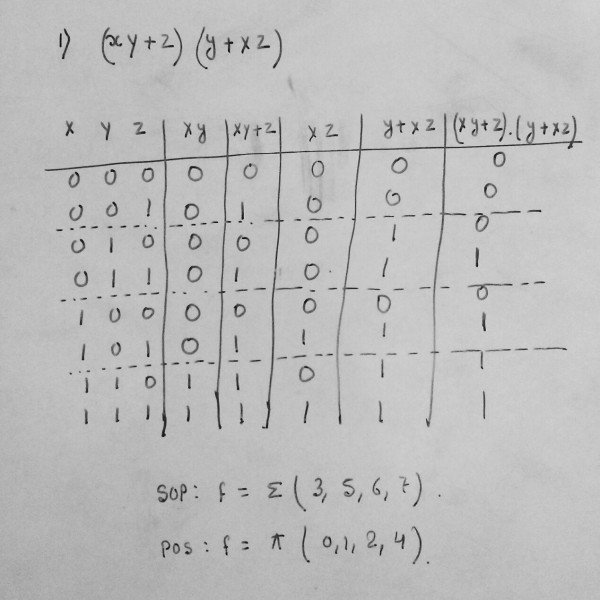 1) (xy+z) (y+xz)
x y z xy xy+z xz y+xz (xy+z).(y+xz)
0 0 0 0 0 0 0 0
0 0 1 0 1 0 0 0
0 1 0 0 0 0 1 0
0 1 1 0 1 0 1 1
1 0 0 0 0 0 0 0
1 0 1 0 1 1 1 1
1 1 0 1 1 0 1 1
1 1 1 1 1 1 1 1
SOP: f = Σ (3, 5, 6, 7).
POS: f = π (0,1, 2, 4).